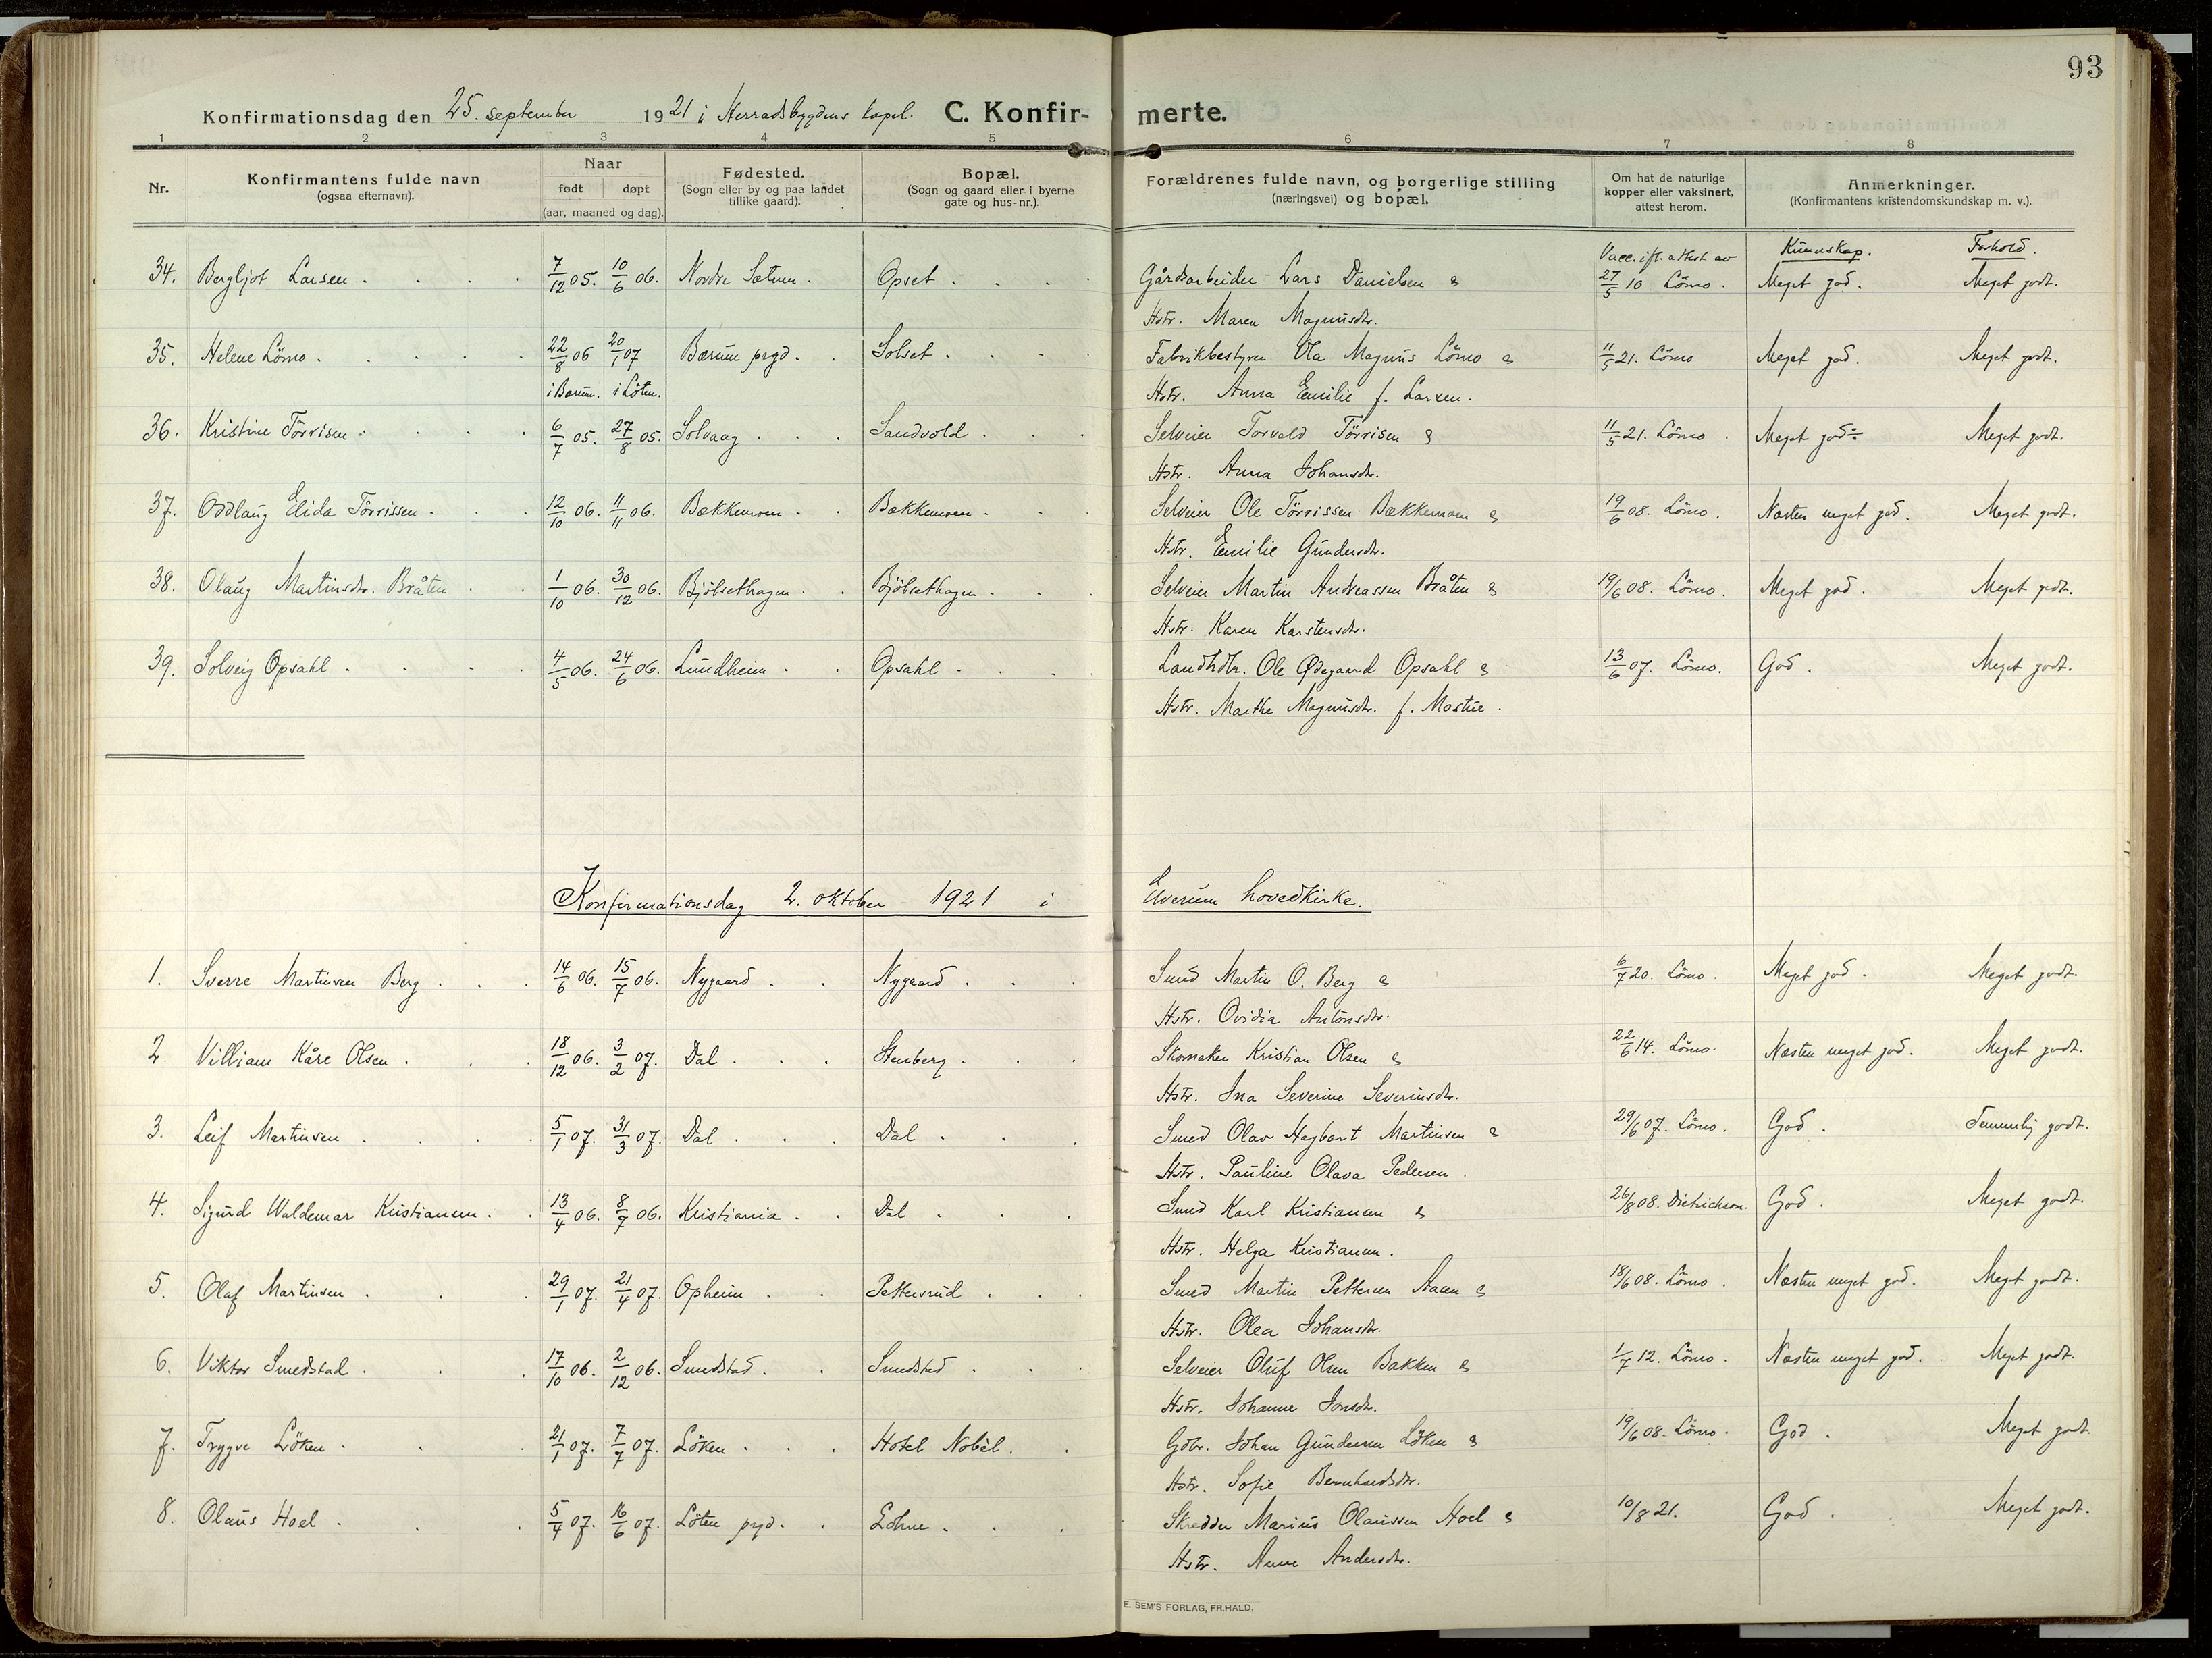 93
Konfirmationsdag den 25. september 1921 i Herradsbygdens kapel. C. Konfir- merte.
1 2 3 4 5 6 7 8
Nr.
Konfirmantens fulde navn
(ogsaa efternavn).
Naar
født døpt
(aar, maaned og dag).
Fødested.
(Sogn eller by og paa landet
tillike gaard).
Bopæl.
(Sogn og gaard eller i byerne
gate og hus-nr.).
Forældrenes fulde navn, og borgerlige stilling
(næringsvei) og bopæl.
Om hat de naturlige
kopper eller vaksinert,
attest herom.
Anmerkninger.
(Konfirmantens kristendomskundskap m. v.).
Vacc. ifl. attest av Kundskap. Forhold.
34. Bergljot Larsen 7/12 05. 10/6 06. Nordre Sætren. Opset Gårdsarbeider Lars Danielsen & 27/5 10 Lömo. Meget god. Meget godt.
Hstr. Maren Magnusdtr.
35. Helene Lömo. 22/8 06 20/1 07 Bærum prgd. Solset Fabrikbestyrer Ola Magnus Lömo & 11/5 21. Lömo Meget god. Meget godt.
i Bærum. i Löten. Hstr. Anna Emilie f. Larsen.
36. Kristine Törrisen 6/7 05. 27/8 05. Solvaag Sandvold Selveier Torvald Törrisen & 11/5 21. Lömo. Meget god÷ Meget godt.
Hstr. Anna Johansdtr.
37. Oddlaug Elida Törrissen 12/10 06. 11/11 06. Bækkemoen Bækkemoen Selveier Ole Törrissen Bækkemoen & 19/6 08. Lömo. Næsten meget god. Meget godt.
Hstr. Emilie Gundersdtr.
38. Olaug Martinsdtr. Bråten 1/10 06. 30/12 06. Bjölsethagen Bjölsethagen Selveier Martin Andreassen Bråten & 19/6 08. Lömo. Meget god. Meget godt.
Hstr. Karen Karstensdtr.
39. Solveig Opsahl 4/5 06. 24/6 06. Lundheim Opsahl Landhdlr. Ole Ødegaard Opsahl & 13/6 07. Lömo. God. Meget godt.
Hstr. Marthe Magnusdtr. f. Mostue.
Konfirmationsdag 2. oktober 1921 i Elverum hovedkirke.
1. Sverre Martinsen Berg 14/6 06. 15/7 06. Nygaard Nygaard Smed Martin O. Berg & 6/7 20. Lömo. Meget god. Meget godt.
Hstr. Ovidia Antonsdtr.
2. Villiam Kåre Olsen 18/12 06. 3/2 07. Dal Stenberg Skomaker Kristian Olsen & 22/6 14. Lömo. Næsten meget god. Meget godt.
Hstr. Ina Severine Severinsdtr.
3. Leif Martinsen 5/1 07. 31/3 07. Dal Dal Smed Olav Hagbart Martinsen & 29/6 07. Lömo. God. Temmelig godt.
Hstr. Pauline Olava Pedersen.
4. Sigurd Waldemar Kristiansen. 13/4 06. 8/7 06. Kristiania Dal Smed Karl Kristiansen & 26/8 08. Dietrichson. God. Meget godt.
Hstr. Helga Kristiansen.
5. Olaf Martinsen 29/1 07. 21/4 07. Opheim Pettersrud Smed Martin Pettersen Aaen & 18/6 08. Lömo. Næsten meget god. Meget godt.
Hstr. Olea Johansdtr.
6. Viktor Smedstad 17/10 06. 2/12 06. Smedstad Smedstad Selveier Oluf Olsen Bakken & 1/7 12. Lömo. Næsten meget god. Meget godt.
Hstr. Johanne Jonsdtr.
7. Trygve Löken 21/1 07. 7/7 07. Löken Hotel Nobel Gdbr. Johan Gundersen Löken & 19/6 08. Lömo. God. Meget godt.
Hstr. Sofie Bernhardsdtr.
8. Olaus Hoel 5/4 07. 16/6 07. Löten prgd. Skredder Marius Olaussen Hoel & 10/8 21. God. Meget godt.
Hstr. Anne Andersdtr.
E. SEM'S FORLAG, FR.HALD.